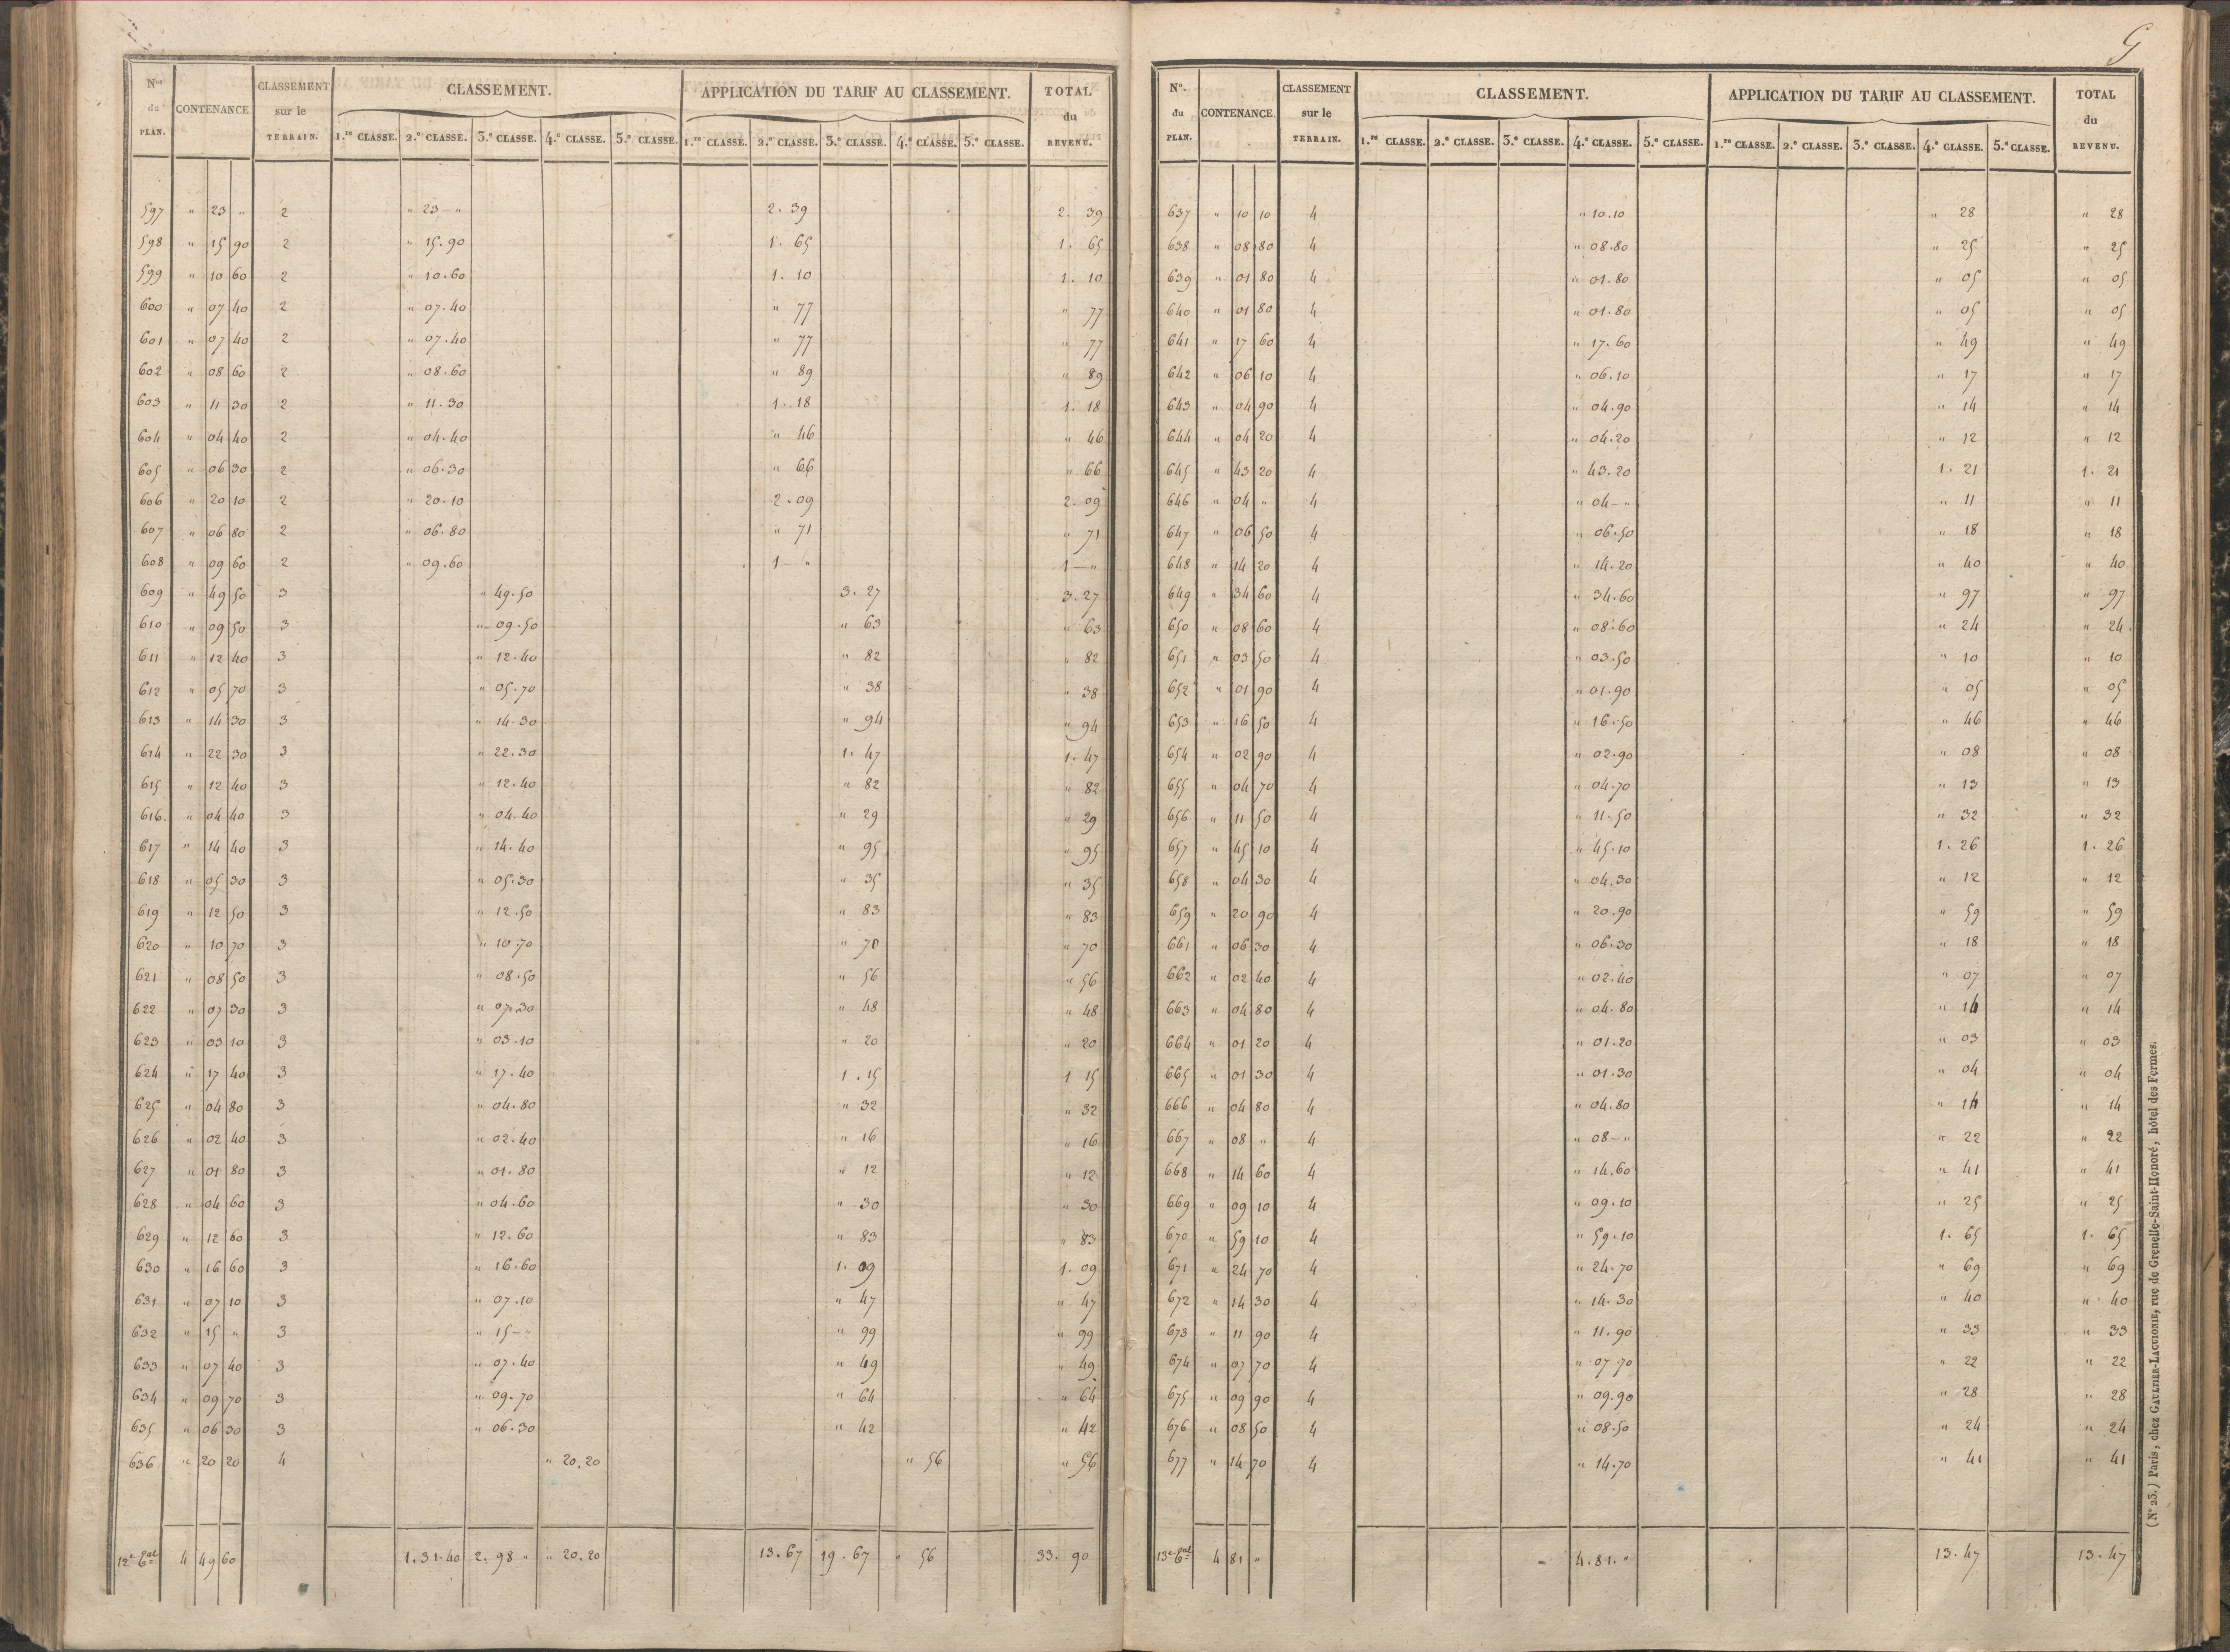 G
Nos du PLAN. CONTENANCE. CLASSEMENT sur le TERRAIN. CLASSEMENT. APPLICATION DU TARIF AU CLASSEMENT. TOTAL du REVENU.
1.re CLASSE. 2.e CLASSE. 3.e CLASSE. 4.e CLASSE. 5.e CLASSE. 1.re CLASSE. 2.e CLASSE. 3.e CLASSE. 4.e CLASSE. 5.e CLASSE.
597 " 23 " 2 " 23 – " 2. 39 2. 39
598 " 15 90 2 " 15.90 1. 65 1. 65
599 " 10 60 2 " 10.60 1. 10 1. 10
600 " 07 40 2 " 07.40 " 77 " 77
601 " 07 40 2 " 07.40 " 77 " 77
602 " 08 60 2 " 08.60 " 89 " 89
603 " 11 30 2 " 11.30 1. 18 1. 18
604 " 04 40 2 " 04.40 " 46 " 46
605 " 06 30 2 " 06.30 " 66 " 66
606 " 20 10 2 " 20.10 2. 09 2. 09
607 " 06 80 2 " 06.80 " 71 " 71
608 " 09 60 2 " 09.60 1 – " 1 – "
609 " 49 50 3 " 49.50 3. 27 3. 27
610 " 09 50 3 " 09.50 " 63 " 63
611 " 12 40 3 " 12.40 " 82 " 82
612 " 05 70 3 " 05.70 " 38 " 38
613 " 14 30 3 " 14.30 " 94 " 94
614 " 22 30 3 " 22.30 1. 47 1. 47
615 " 12 40 3 " 12.40 " 82 " 82
616. " 04 40 3 " 04.40 " 29 " 29
617 " 14 40 3 " 14.40 " 95 " 95
618 " 05 30 3 " 05.30 " 35 " 35
619 " 12 50 3 " 12.50 " 83 " 83
620 " 10 70 3 " 10.70 " 70 " 70
621 " 08 50 3 " 08.50 " 56 " 56
622 " 07 30 3 " 07.30 " 48 " 48
623 " 03 10 3 " 03.10 " 20 " 20
624 " 17 40 3 " 17.40 1. 15 1 15
625 " 04 80 3 " 04.80 " 32 " 32
626 " 02 40 3 " 02.40 " 16 " 16
627 " 01 80 3 " 01.80 " 12 " 12
628 " 04 60 3 " 04.60 " 30 " 30
629 " 12 60 3 " 12.60 " 83 " 83
630 " 16 60 3 " 16.60 1. 09 1. 09
631 " 07 10 3 " 07.10 " 47 " 47
632 " 15 " 3 " 15 – " " 99 " 99
633 " 07 40 3 " 07.40 " 49 " 49
634 " 09 70 3 " 09.70 " 64 " 64
635 " 06 30 3 " 06.30 " 42 " 42
636 " 20 20 4 " 20.20 " 56 " 56
12e Gal 4 49 60 1.31.40 2. 98 " " 20.20 13.67 19.67 " 56 33. 90
No. du PLAN. CONTENANCE. CLASSEMENT sur le TERRAIN. CLASSEMENT. APPLICATION DU TARIF AU CLASSEMENT. TOTAL du REVENU.
1.re CLASSE. 2.e CLASSE. 3.e CLASSE. 4.e CLASSE. 5.e CLASSE. 1.re CLASSE. 2.e CLASSE. 3.e CLASSE. 4.e CLASSE. 5.e CLASSE.
637 " 10 10 4 " 10.10 " 28 " 28
638 " 08 80 4 " 08.80 " 25 " 25
639 " 01 80 4 " 01.80 " 05 " 05
640 " 01 80 4 " 01.80 " 05 " 05
641 " 17 60 4 " 17.60 " 49 " 49
642 " 06 10 4 " 06.10 " 17 " 17
643 " 04 90 4 " 04.90 " 14 " 14
644 " 04 20 4 " 04.20 " 12 " 12
645 " 43 20 4 " 43.20 1. 21 1. 21
646 " 04 " 4 " 04 – " " 11 " 11
647 " 06 50 4 " 06.50 " 18 " 18
648 " 14 20 4 " 14.20 " 40 " 40
649 " 34 60 4 " 34.60 " 97 " 97
650 " 08 60 4 " 08.60 " 24 " 24
651 " 03 50 4 " 03.50 " 10 " 10
652 " 01 90 4 " 01.90 " 05 " 05
653 " 16 50 4 " 16.50 " 46 " 46
654 " 02 90 4 " 02.90 " 08 " 08
655 " 04 70 4 " 04.70 " 13 " 13
656 " 11 50 4 " 11.50 " 32 " 32
657 " 45 10 4 " 45.10 1. 26 1. 26
658 " 04 30 4 " 04.30 " 12 " 12
659 " 20 90 4 " 20.90 " 59 " 59
661 " 06 30 4 " 06.30 " 18 " 18
662 " 02 40 4 " 02.40 " 07 " 07
663 " 04 80 4 " 04.80 " 14 " 14
664 " 01 20 4 " 01.20 " 03 " 03
665 " 01 30 4 " 01.30 " 04 " 04
666 " 04 80 4 " 04.80 " 14 " 14
667 " 08 " 4 " 08 – " " 22 " 22
668 " 14 60 4 " 14.60 " 41 " 41
669 " 09 10 4 " 09.10 " 25 " 25
670 " 59 10 4 " 59.10 1. 65 1. 65
671 " 24 70 4 " 24.70 " 69 " 69
672 " 14 30 4 " 14.30 " 40 " 40
673 " 11 90 4 " 11.90 " 33 " 33
674 " 07 70 4 " 07.70 " 22 " 22
675 " 09 90 4 " 09.90 " 28 " 28
676 " 08 50 4 " 08.50 " 24 " 24
677 " 14 70 4 " 14.70 " 41 " 41
13e Gal 4 81 " 4.81. " 13.47 13.47
(No 23.) Paris, chez GAULTIER-LAGUIONIE, rue de Grenelle-Saint-Honoré, hôtel des Fermes.